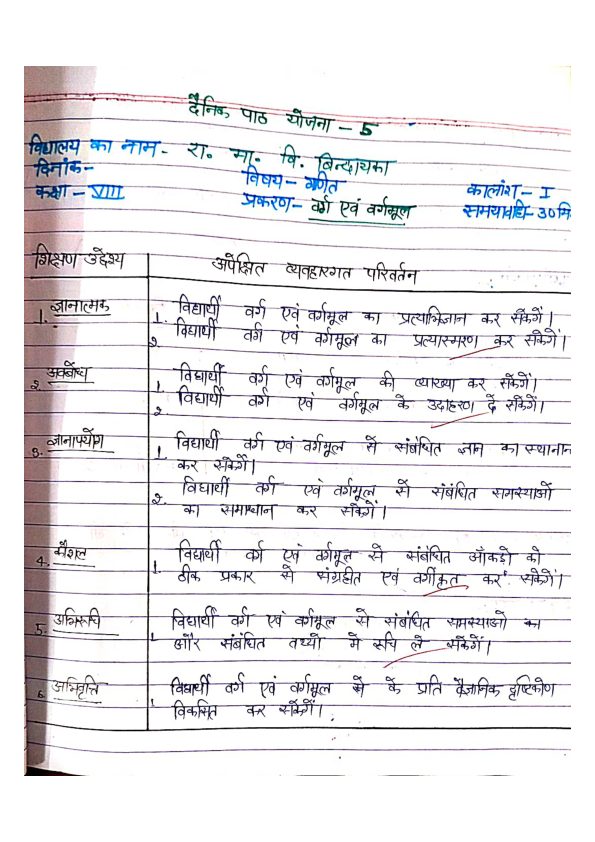 दैनिक पाठ योजना - 5
विद्यालय का नाम - रा. मा. वि. बिन्दायका
दिनांक-
विषय - गणित
कालांश - I
कक्षा - VIII
प्रकरण - वर्ग एवं वर्गमूल
समयावधि - 30 मि
शिक्षण उद्देश्य
अपेक्षित व्यवहारगत परिवर्तन
1. ज्ञानात्मक
1. विद्यार्थी वर्ग एवं वर्गमूल का प्रत्याभिज्ञान कर सकेंगें।
2. विद्यार्थी वर्ग एवं वर्गमूल का प्रत्यास्मरण कर सकेंगें।
2. अवबोध
1. विद्यार्थी वर्ग एवं वर्गमूल की व्याख्या कर सकेंगें।
2. विद्यार्थी वर्ग एवं वर्गमूल के उदाहरण दे सकेंगें।
3. ज्ञानापयोग
1. विद्यार्थी वर्ग एवं वर्गमूल से संबंधित ज्ञान का स्थानान
कर सकेंगें।
2. विद्यार्थी वर्ग एवं वर्गमूल से संबंधित समस्याओं
का समाधान कर सकेंगें।
4. कौशल
1. विद्यार्थी वर्ग एवं वर्गमूल से संबंधित आँकडो को
ठीक प्रकार से संग्रहीत एवं वर्गीकृत कर सकेंगें।
5. अभिरूचि
1. विद्यार्थी वर्ग एवं वर्गमूल से संबंधित समस्याओं का
और संबंधित तथ्यो में रूचि ले सकेंगें।
6. अभिवृत्ति
1. विद्यार्थी वर्ग एवं वर्गमूल से के प्रति वैज्ञानिक दृष्टिकोण
विकसित कर सकेंगें।